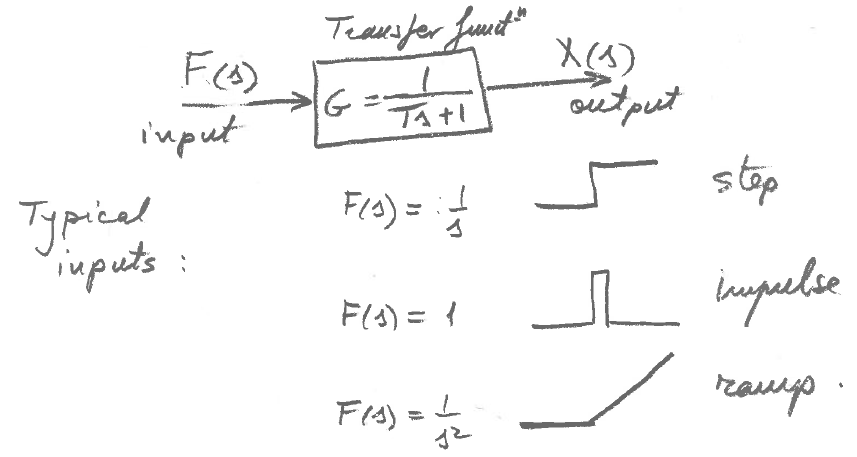 Transfer functⁿ
F(s) G = 1/(Ts+1) X(s)
input output
Typical inputs :
F(s) = 1/s step
F(s) = 1 impulse
F(s) = 1/s² ramp.